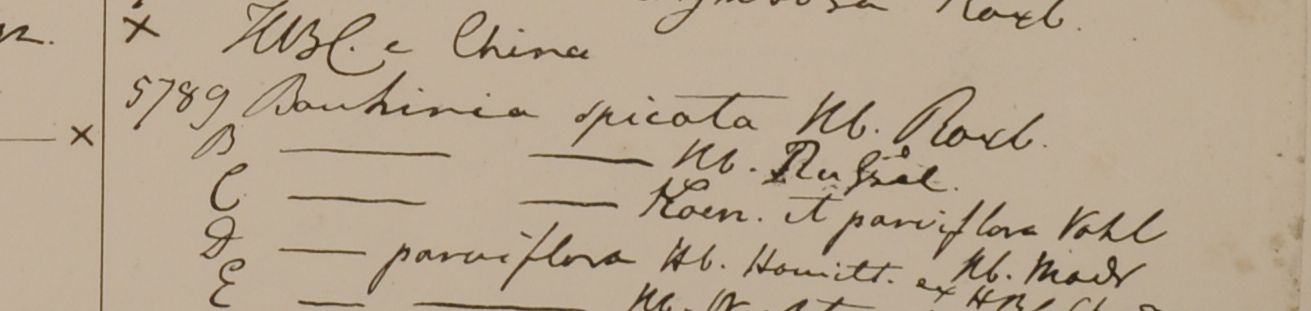 Roxb.
× HBC. e China
5789 Bauhinia spicata Hb. Roxb.
B ——— ——— Hb. Russel.
C ——— ——— Koen. et parviflora Vahl
D —— parviflora Hb. Hamilt. ex Hb. Madr
E —— ——— Hb.